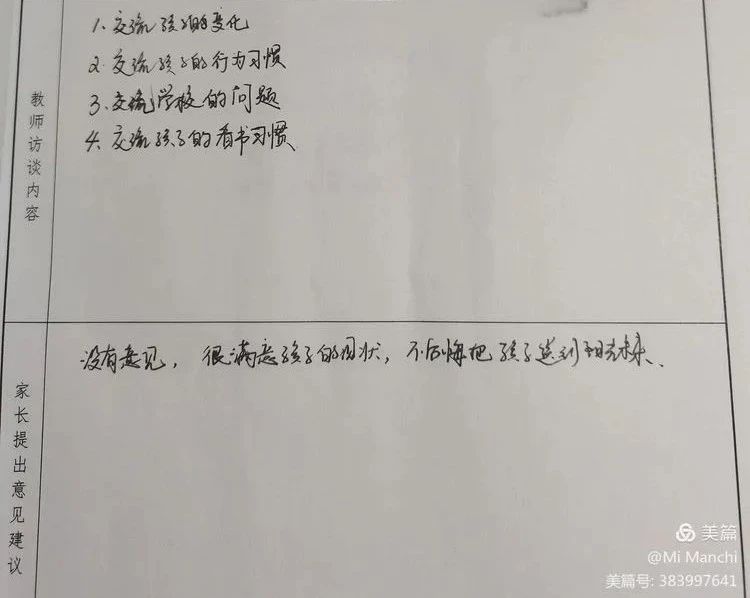 教师访谈内容
1.交流孩子的变化
2.交流孩子的行为习惯
3.交流学校的问题
4.交流孩子的看书习惯
家长提出意见建议
没有意见，很满意孩子的现状，不后悔把孩子送到
美篇
@Mi Manchi
美篇号: 383997641